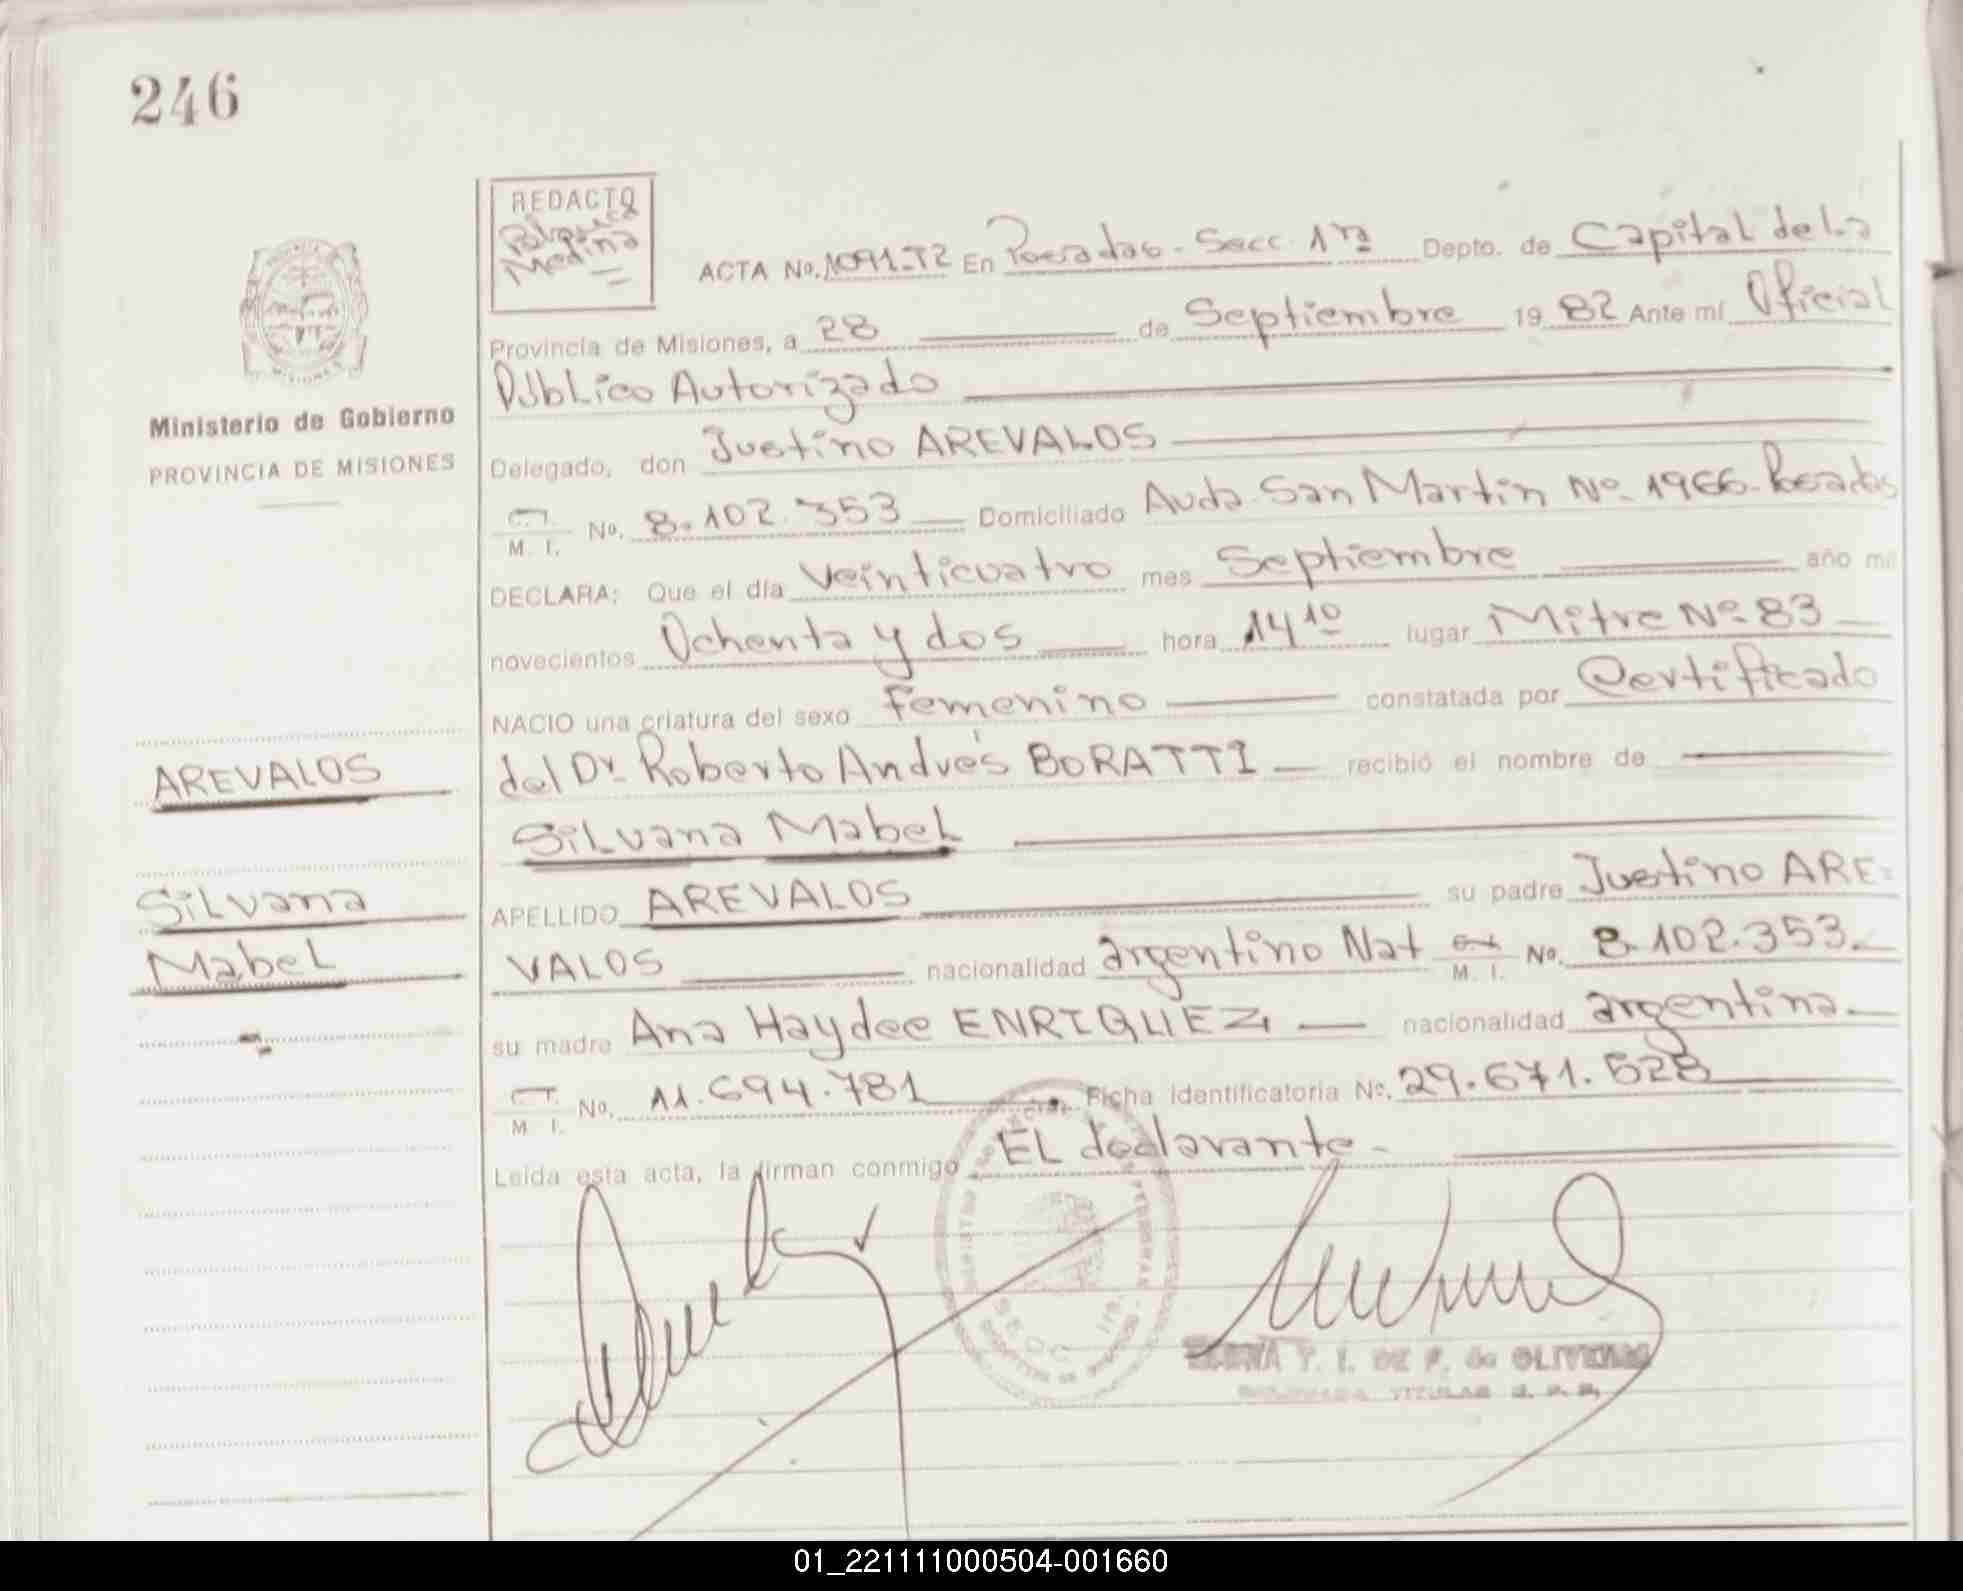 246
REDACTO
Medina
ACTA No. 1091-T2 En Posadas - Secc. 1ra Depto. de Capital de La
Provincia de Misiones, a 28 de Septiembre 19 82 Ante mí Oficial
Público Autorizado
Ministerio de Gobierno
PROVINCIA DE MISIONES
Delegado, don Justino AREVALOS
M. I. No. 8.102.353 Domiciliado Avda San Martin No. 1966 - Posadas
DECLARA: Que el día veinticuatro mes Septiembre año mil
novecientos Ochenta y dos hora 14 10 lugar Mitre No 83
NACIO una criatura del sexo femenino constatada por Certificado
del Dr. Roberto Andrés BORATTI recibió el nombre de
Silvana Mabel
APELLIDO AREVALOS su padre Justino ARE-
VALOS nacionalidad argentino Nat M. I. No. 8.102.353.
su madre Ana Haydee ENRIQUEZ nacionalidad argentina
M. I. No. 11.694.781 Ficha identificatoria No. 29.671.528
Leída esta acta, la firman conmigo EL declarante.
AREVALOS
Silvana
Mabel
DE F. de OLIVEIRA
TITULAR
01_221111000504-001660